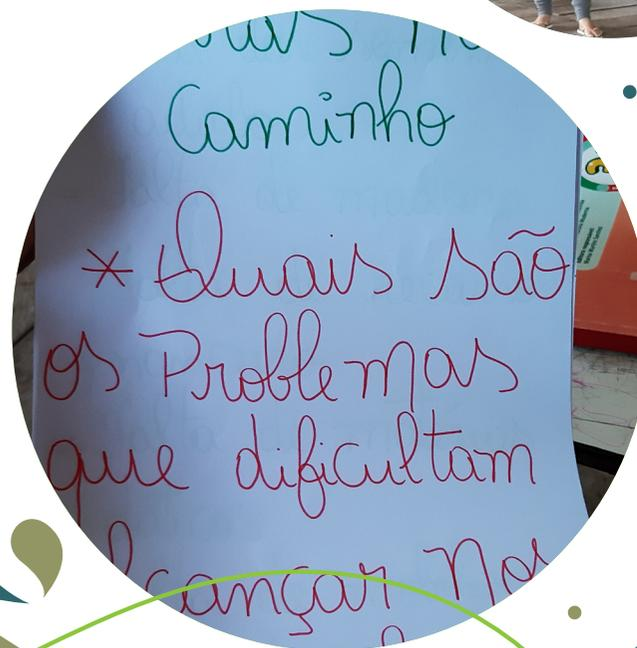 Caminho
* Quais são
os Problemas
que dificultam
alcançar Nos